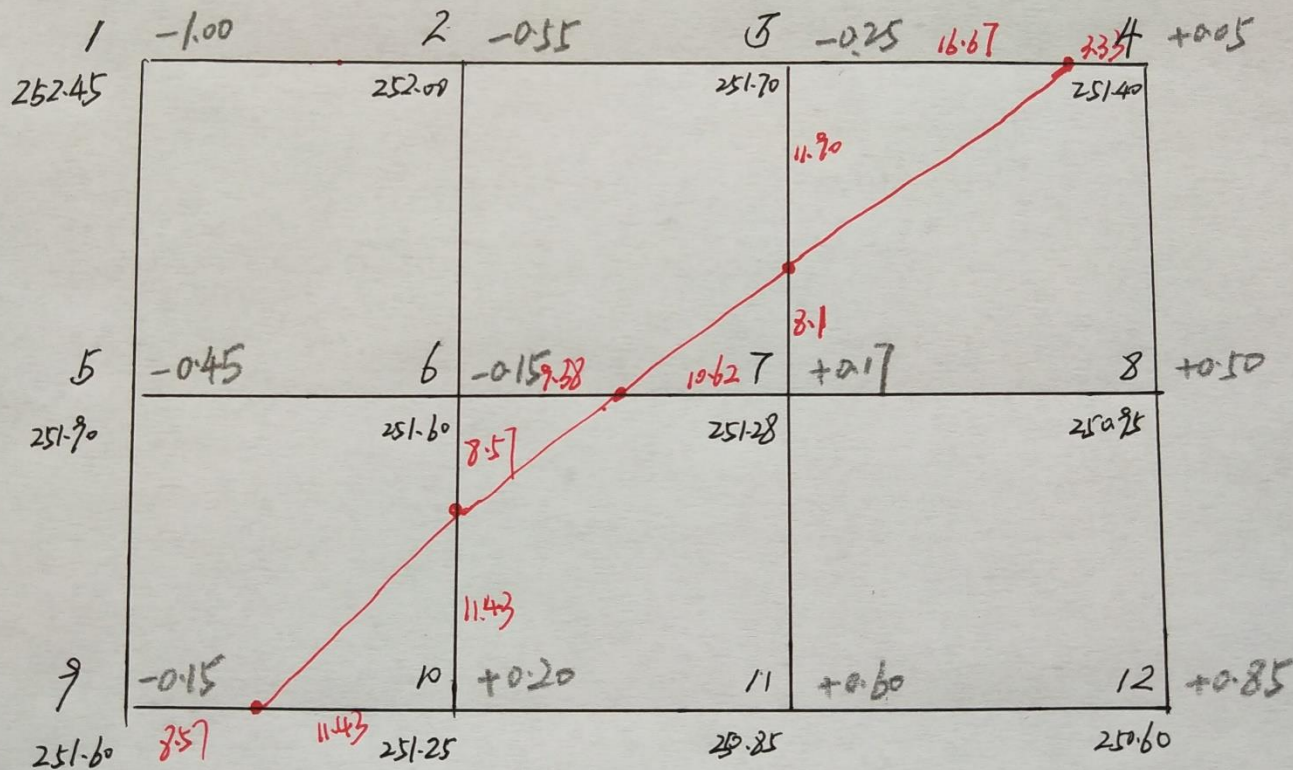 1 -1.00 2 -0.55 3 -0.25 16.67 3.33 4 +0.05
252.45 252.00 251.70 251.40
11.90
8.1
5 -0.45 6 -0.15 9.38 10.62 7 +0.17 8 +0.50
251.90 251.60 251.28 250.95
8.57
11.43
9 -0.15 10 +0.20 11 +0.60 12 +0.85
251.60 8.57 11.43 251.25 250.85 250.60